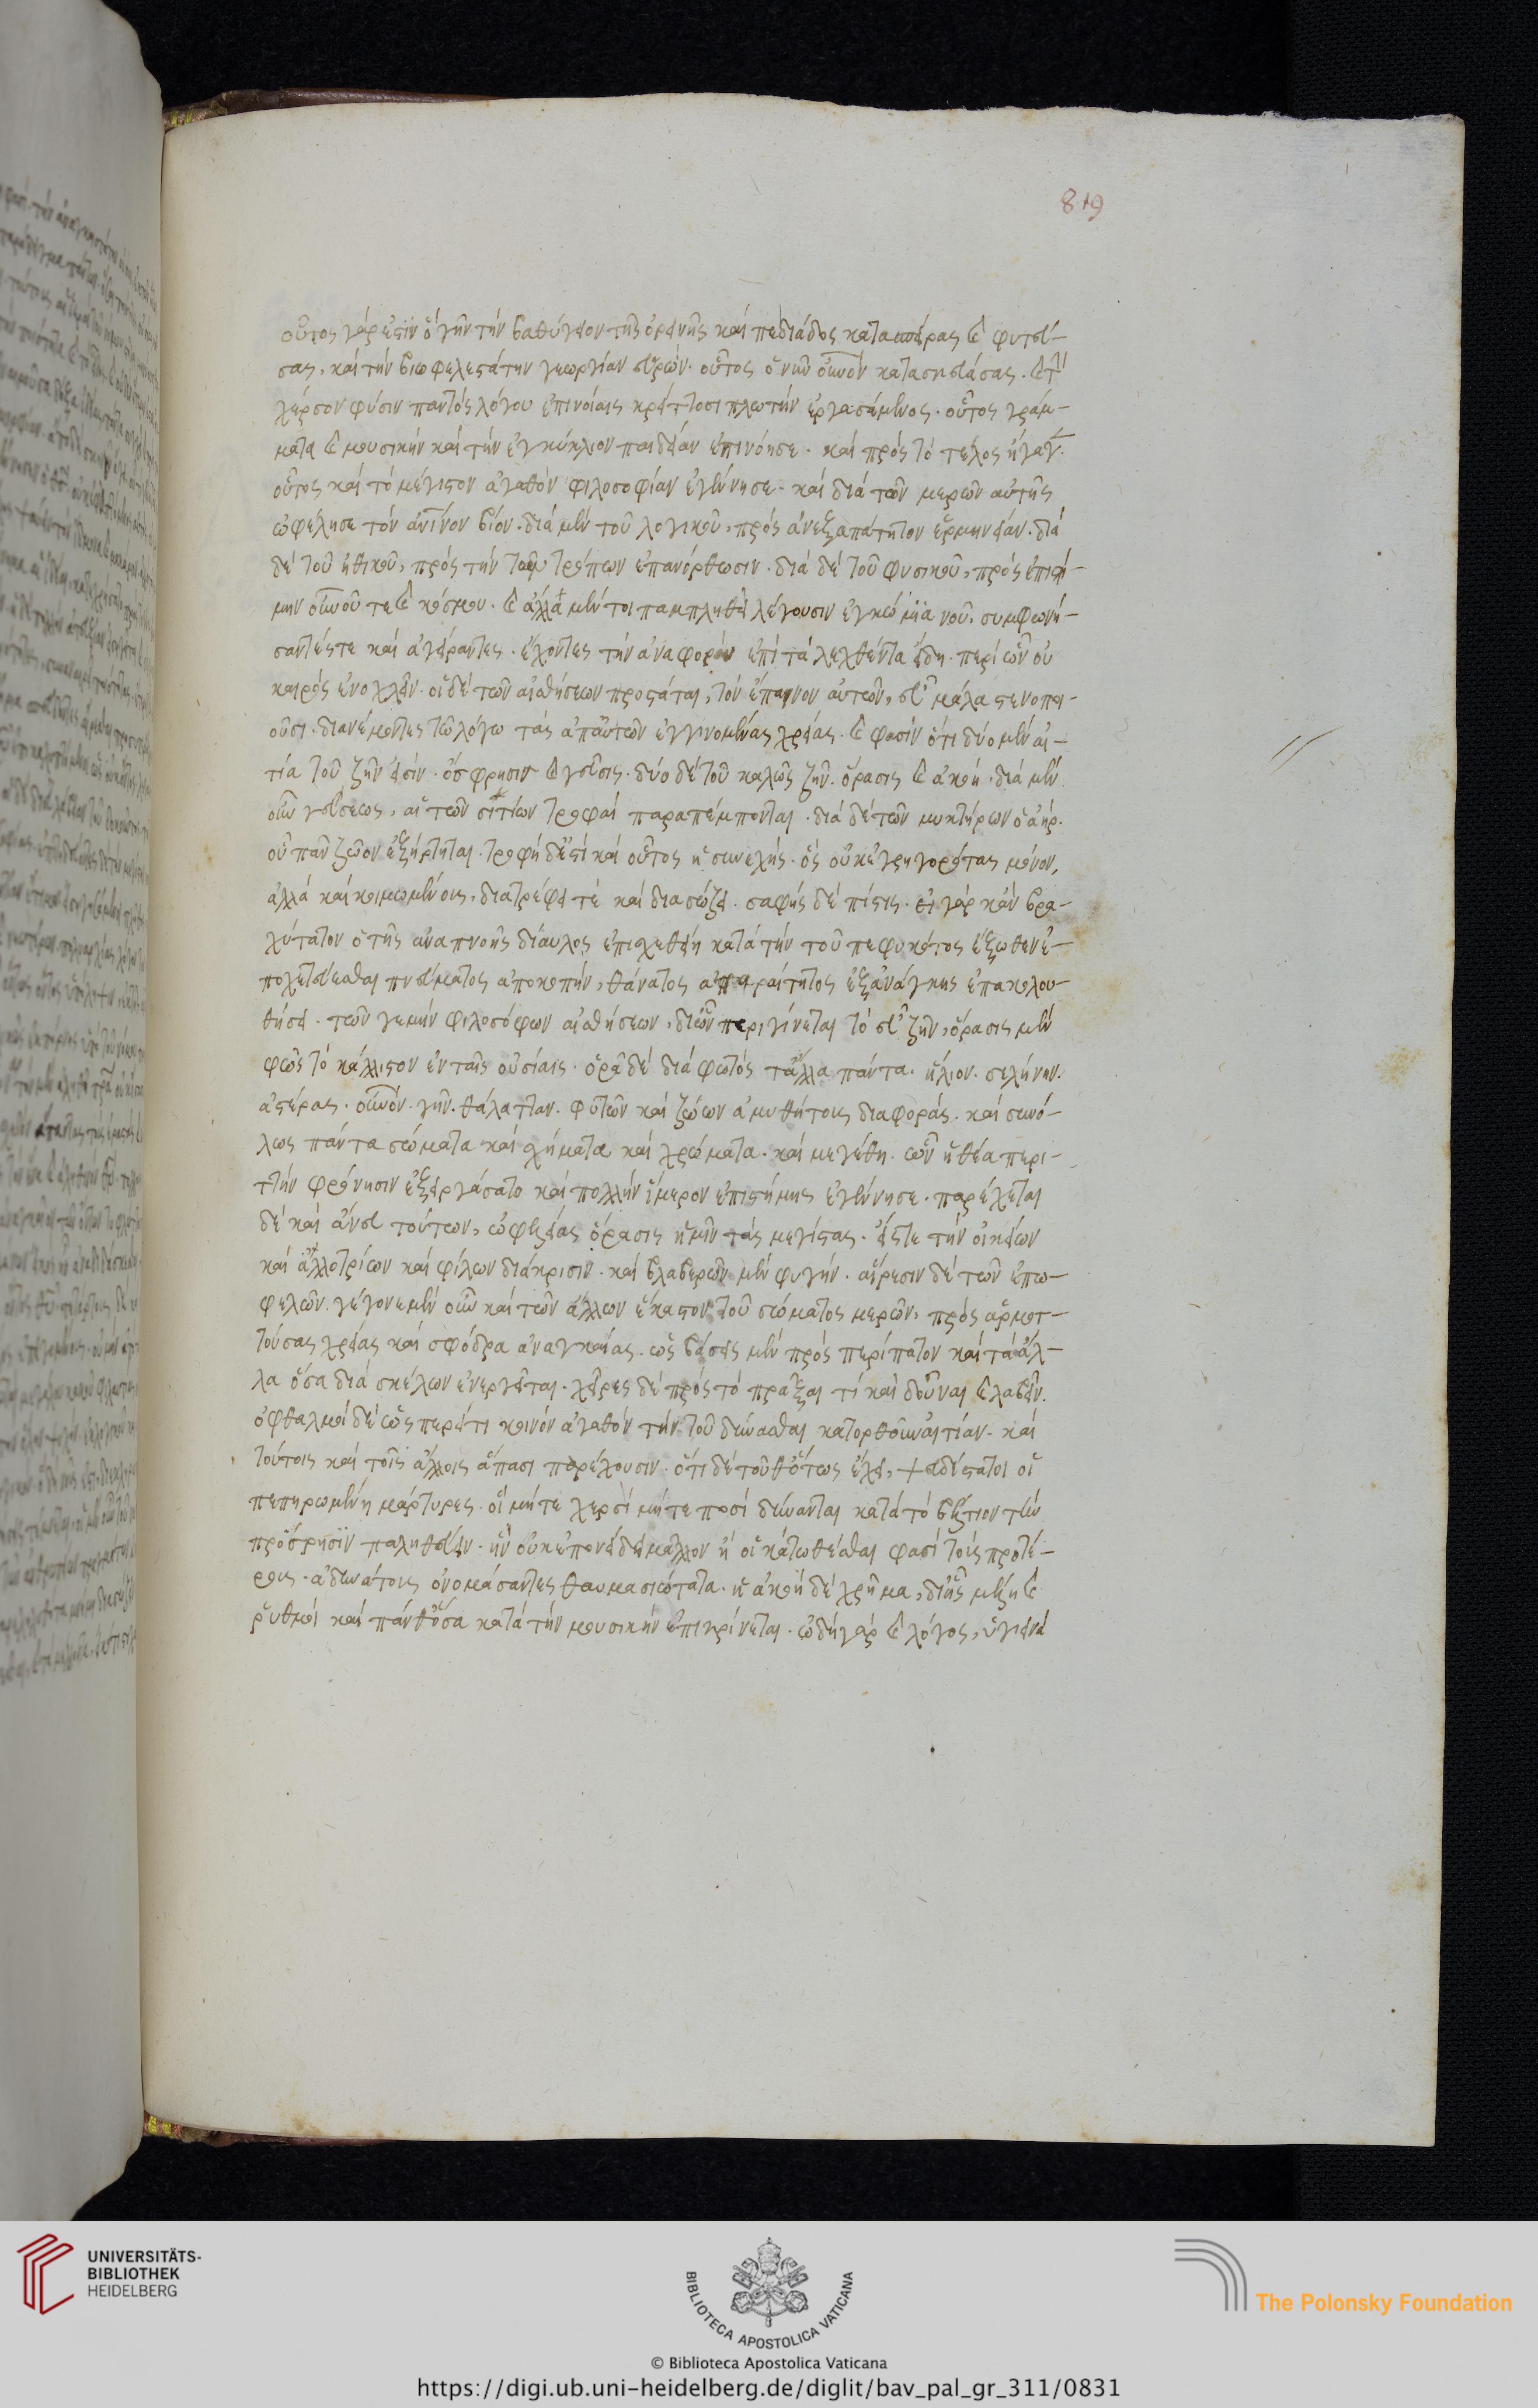 819
οὗτος γάρ ἐστιν ὁ γῆν τὴν βαθύγειον τῆς ὀρεινῆς καὶ πεδιάδος κατασπείρας καὶ φυτεύ-
σας, καὶ τὴν βιωφελεστάτην γεωργίαν εὑρών. οὗτος ὁ νῦν οὐνὸν κατασκευάσας. καὶ τὴν
χέρσον φύσιν παντὸς λόγου ἐπινοίαις κρείττοσι πλωτὴν ἐργασάμενος. οὗτος γράμ-
ματα καὶ μουσικὴν καὶ τὴν ἐγκύκλιον παιδείαν ἐπινόησε. καὶ πρὸς τὸ τέλος ἤγαγεν.
οὗτος καὶ τὸ μέγιστον ἀγαθὸν φιλοσοφίαν ἐγέννησε. καὶ διὰ τῶν μερῶν αὐτῆς
ὠφέλησε τὸν ἀνινον βίον. διὰ μὲν τοῦ λογικοῦ, πρὸς ἀνεξαπάτητον ἑρμηνείαν. διὰ
δὲ τοῦ ἠθικοῦ, πρὸς τὴν τῶν τρόπων ἐπανόρθωσιν. διὰ δὲ τοῦ φυσικοῦ, πρὸς ἐπιστή-
μην οὐνοῦ τε καὶ κόσμου. καὶ ἄλλα μέντοι παμπληθῆ λέγουσιν ἐγκώμϊα νοῦ. συμφωνή-
σαντές τε καὶ ἀγείραντες. ἔχοντες τὴν ἀναφορὰν ἐπὶ τὰ λεχθέντα εἴδη. περὶ ὧν οὐ
καιρὸς ἐνοχλεῖν. οἱ δὲ τῶν αἰσθήσεων προστάται, τὸν ἔπαινον αὐτῶν, εὖ μάλα σεμνοποι-
οῦσι. διανέμοντες τῶ λόγω τὰς ἀπ' αὐτῶν ἐγγινομένας χρείας. καὶ φασὶν ὅτι δύο μὲν αἴ-
τια τοῦ ζῆν εἰσίν. ὄσφρησιν καὶ γεῦσις. δύο δὲ τοῦ καλῶς ζῆν. ὅρασις καὶ ἀκοή. διὰ μὲν
οὖν γεύσεως, αἱ τῶν σιτίων τροφαὶ παραπέμπονται. διὰ δὲ τῶν μυκτήρων ὁ ἀήρ.
οὗ πᾶν ζῶον ἐξήρτηται. τροφὴ δ' ἐστὶ καὶ οὗτος ἡ συνεχής. ὃς οὐκ ἐγρηγορότας μόνον,
ἀλλὰ καὶ κοιμωμένους, διατρέφει τὲ καὶ διασώζει. σαφὴς δὲ πίστις. εἰ γὰρ κἂν βρα-
χύτατον ὁ τῆς ἀναπνοῆς δίαυλος ἐπισχεθείη κατὰ τὴν τοῦ πεφυκότος ἔξωθεν ἐ-
ποχετεύεσθαι πνεύματος ἀποκοπήν, θάνατος ἀπαραίτητος ἐξ ἀνάγκης ἐπακολου-
θήσει. τῶν γε μὴν φιλοσόφων αἰσθήσεων, δι' ὧν περιγίνεται τὸ εὖ ζῆν, ὅρασις μὲν
φῶς τὸ κάλλιστον ἐν ταῖς οὐσίαις. ὁρᾶ δὲ διὰ φωτὸς τἄλλα πάντα. ἥλιον. σελήνην.
ἀστέρας. οὐνόν. γῆν. θάλατταν. φυτῶν καὶ ζώων ἀμυθήτους διαφοράς. καὶ συνό-
λως πάντα σώματα καὶ σχήματα καὶ χρώματα. καὶ μεγέθη. ὧν ἡ θέα περι-
ττὴν φρόνησιν ἐξειργάσατο καὶ πολλὴν ἵμερον ἐπιστήμης ἐγέννησε. παρέχεται
δὲ καὶ ἄνευ τούτων, ὠφελείας ὅρασις ἡμῖν τὰς μεγίστας. εἴς τε τὴν οἰκείων
καὶ ἀλλοτρίων καὶ φίλων διάκρισιν. καὶ βλαβερῶν μὲν φυγήν. αἵρεσιν δὲ τῶν ἐπω-
φελῶν. γέγονε μὲν οὖν καὶ τῶν ἄλλων ἕκαστον τοῦ σώματος μερῶν, πρὸς ἁρμοτ-
τούσας χρείας καὶ σφόδρα ἀναγκαίας. ὡς βάσεις μὲν πρὸς περίπατον καὶ τὰ ἄλ-
λα ὅσα διὰ σκέλων ἐνεργεῖται. χεῖρες δὲ πρὸς τὸ πρᾶξαι τὶ καὶ δοῦναι καὶ λαβεῖν.
ὀφθαλμοὶ δὲ ὥσπερ εἴ τι κοινὸν ἀγαθὸν τὴν τοῦ δύνασθαι κατορθοῦν αἰτίαν. καὶ
τούτοις καὶ τοῖς ἄλλοις ἅπασι παρέχουσιν. ὅτι δὲ τοῦθ' οὕτως ἔχει, ἀψευδέστατοι οἱ
πεπηρωμένοι μάρτυρες. οἳ μήτε χερσὶ μήτε ποσὶ δύνανται κατὰ τὸ βέλτιον τὴν
πρόσρησϊν παληθεύειν. ἣν οὐκ ἐπονείδει μᾶλλον ἢ οἰκάτωθέσθαι φασὶ τοὺς προτέ-
ρους. ἀδυνάτους ὀνομάσαντες θαυμασιώτατα. ἡ ἀκοὴ δὲ χρῆμα, δι' ἧς μέλη καὶ
ῥυθμοὶ καὶ πάνθ' ὅσα κατὰ τὴν μουσικὴν ἐπικρίνεται. ὠδὴ γὰρ καὶ λόγος, ὑγιεινὰ
UNIVERSITÄTS-
BIBLIOTHEK
HEIDELBERG
BIBLIOTECA APOSTOLICA VATICANA
The Polonsky Foundation
© Biblioteca Apostolica Vaticana
https://digi.ub.uni-heidelberg.de/diglit/bav_pal_gr_311/0831